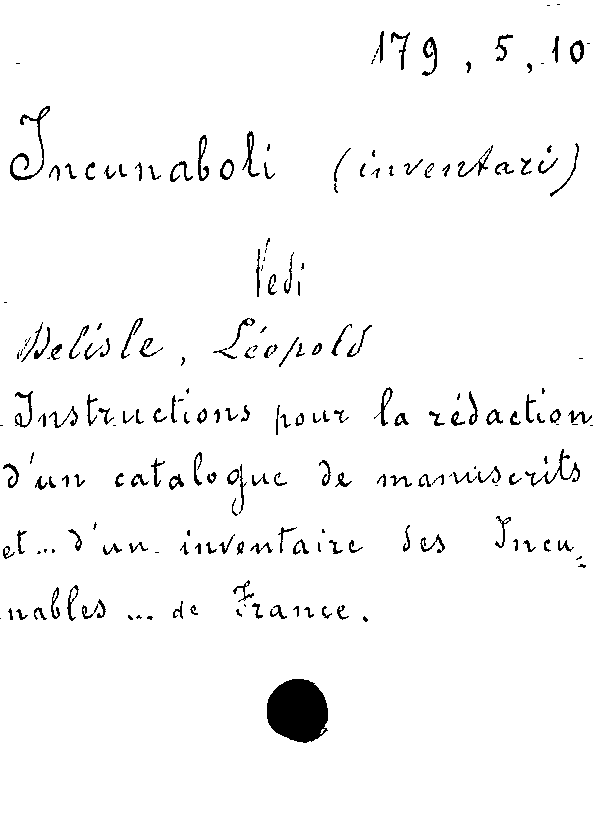 179, 5, 10
Incunaboli (inventari)
Vedi
Delisle, Léopold
Instructions pour la rédaction
d'un catalogue de manuscrits
et... d'un inventaire des Incu-
nables... de France.